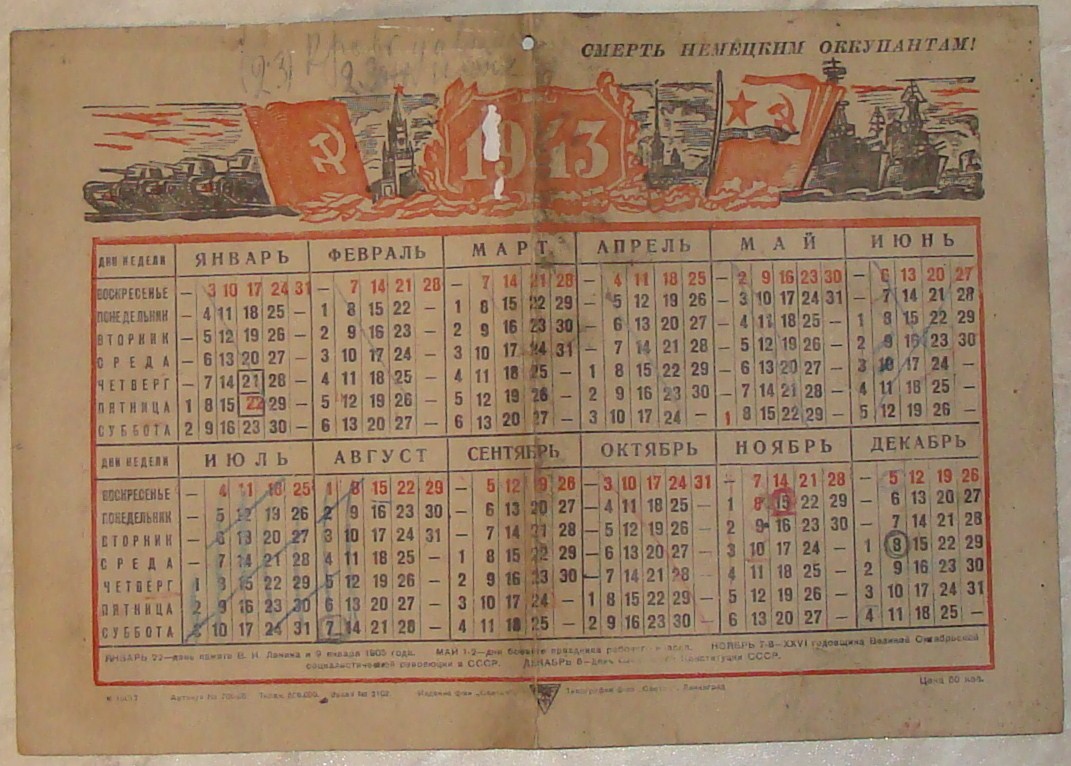 СМЕРТЬ НЕМЕЦКИМ ОККУПАНТАМ!
1943
ДНИ НЕДЕЛИ ЯНВАРЬ ФЕВРАЛЬ МАРТ АПРЕЛЬ МАЙ ИЮНЬ
ВОСКРЕСЕНЬЕ – 3 10 17 24 31 – 7 14 21 28 – 7 14 21 28 – 4 11 18 25 – 2 9 16 23 30 – 6 13 20 27
ПОНЕДЕЛЬНИК – 4 11 18 25 – 1 8 15 22 – 1 8 15 22 29 – 5 12 19 26 – 3 10 17 24 31 – 7 14 21 28
ВТОРНИК – 5 12 19 26 – 2 9 16 23 – 2 9 16 23 30 – 6 13 20 27 – 4 11 18 25 – 1 8 15 22 29
СРЕДА – 6 13 20 27 – 3 10 17 24 – 3 10 17 24 31 – 7 14 21 28 – 5 12 19 26 – 2 9 16 23 30
ЧЕТВЕРГ – 7 14 21 28 – 4 11 18 25 – 4 11 18 25 – 1 8 15 22 29 – 6 13 20 27 – 3 10 17 24 –
ПЯТНИЦА 1 8 15 22 29 – 5 12 19 26 – 5 12 19 26 – 2 9 16 23 30 – 7 14 21 28 – 4 11 18 25 –
СУББОТА 2 9 16 23 30 – 6 13 20 27 – 6 13 20 27 – 3 10 17 24 – 1 8 15 22 29 – 5 12 19 26 –
ДНИ НЕДЕЛИ ИЮЛЬ АВГУСТ СЕНТЯБРЬ ОКТЯБРЬ НОЯБРЬ ДЕКАБРЬ
ВОСКРЕСЕНЬЕ – 4 11 18 25 1 8 15 22 29 – 5 12 19 26 – 3 10 17 24 31 – 7 14 21 28 – 5 12 19 26
ПОНЕДЕЛЬНИК – 5 12 19 26 2 9 16 23 30 – 6 13 20 27 – 4 11 18 25 – 1 8 15 22 29 – 6 13 20 27
ВТОРНИК – 6 13 20 27 3 10 17 24 31 – 7 14 21 28 – 5 12 19 26 – 2 9 16 23 30 – 7 14 21 28
СРЕДА – 7 14 21 28 4 11 18 25 – 1 8 15 22 29 – 6 13 20 27 – 3 10 17 24 – 1 8 15 22 29
ЧЕТВЕРГ 1 8 15 22 29 5 12 19 26 – 2 9 16 23 30 – 7 14 21 28 – 4 11 18 25 – 2 9 16 23 30
ПЯТНИЦА 2 9 16 23 30 6 13 20 27 – 3 10 17 24 – 1 8 15 22 29 – 5 12 19 26 – 3 10 17 24 31
СУББОТА 3 10 17 24 31 7 14 21 28 – 4 11 18 25 – 2 9 16 23 30 – 6 13 20 27 – 4 11 18 25 –
ЯНВАРЬ 22—день памяти В. И. Ленина и 9 января 1905 года. МАЙ 1-2—дни праздника НОЯБРЬ 7-8—XXVI годовщина Великой Октябрьской
социалистической революции в СССР. ДЕКАБРЬ 5—день Конституции СССР.
Издание Типография Ленинград Цена 60 коп.